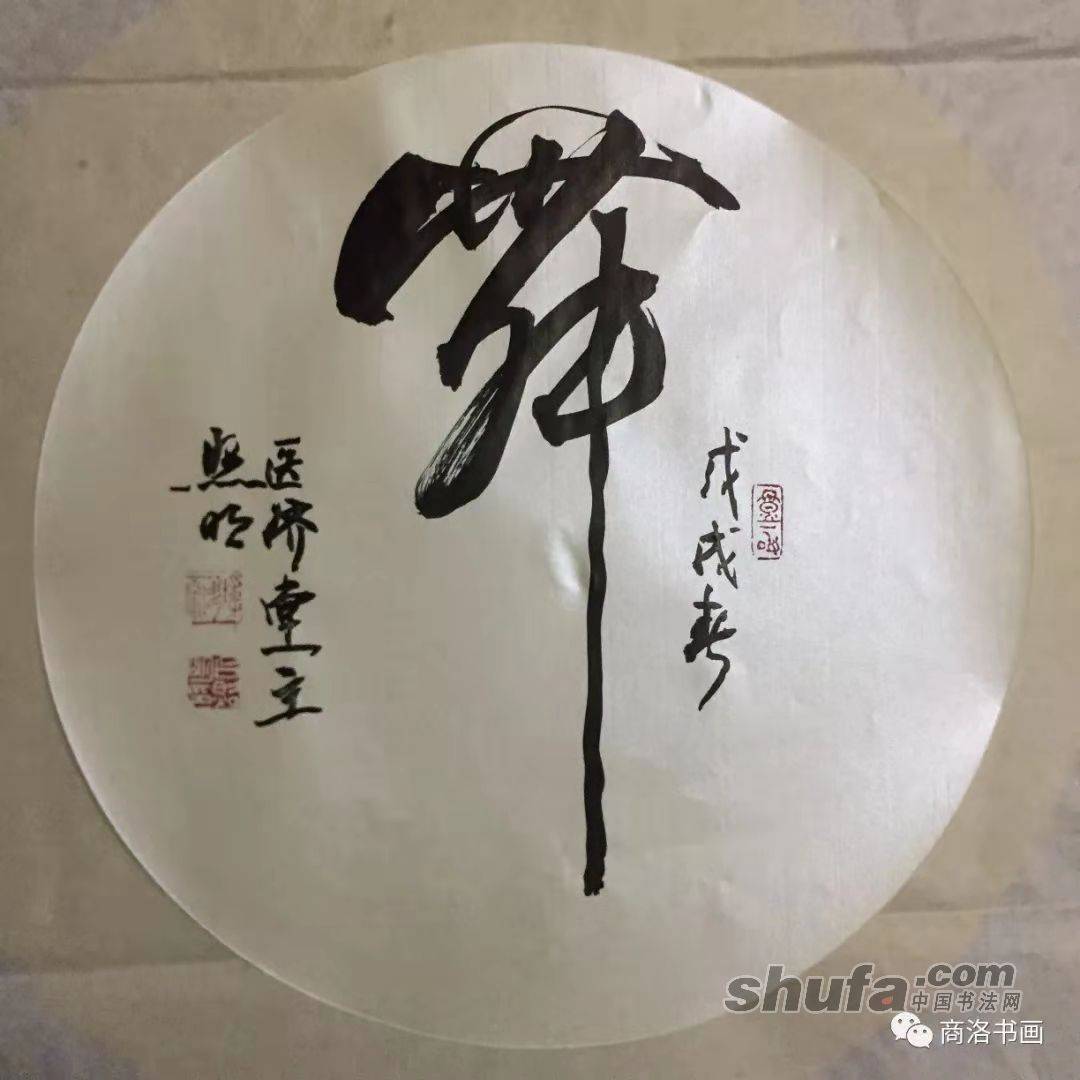 舞
戊戌春
医济堂主
熙明
shufa.com
中国书法网
商洛书画